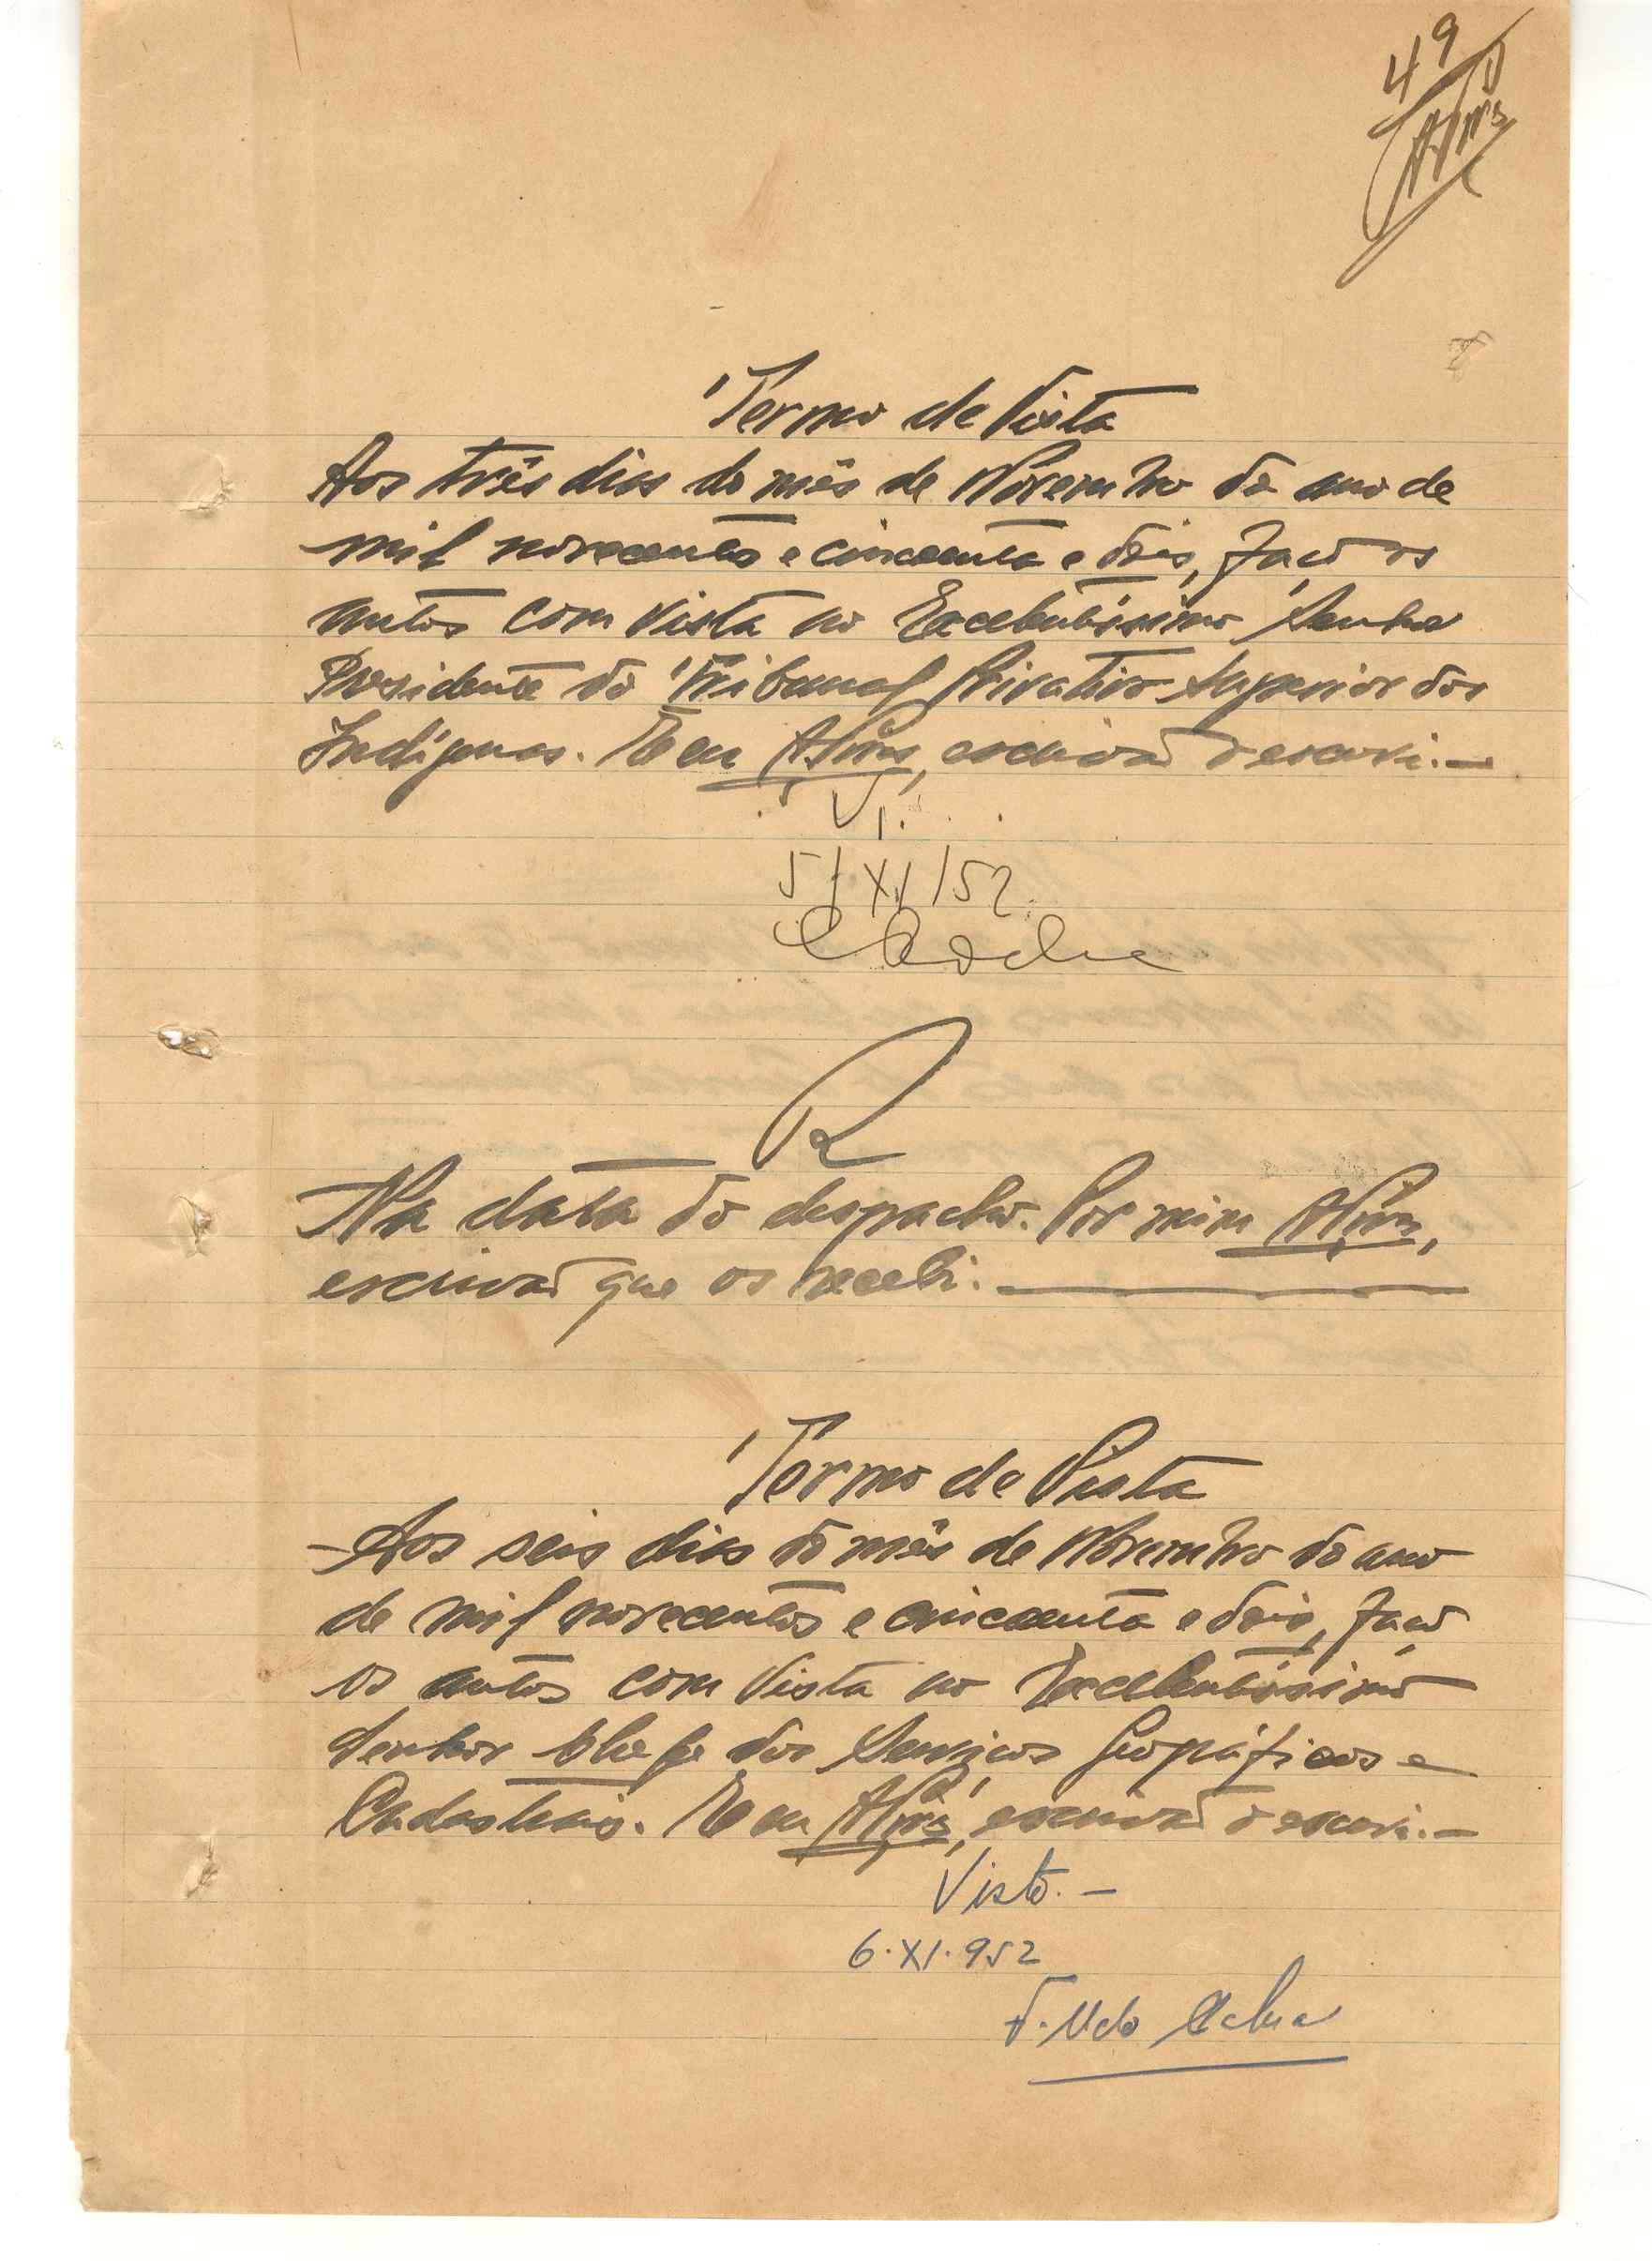 49
Termo de Vista
Aos três dias do mês de Novembro do ano de
mil novecentos e cincoenta e dois, faço os
autos com vista ao Excelentíssimo Senhor
Presidente do Tribunal Privativo Superior dos
Indígenas. E eu, escrivão o escrevi.—
V.
5/XI/52
R
Na data do despacho. Por mim,
escrivão que os recebi.—
Termo de Vista
—Aos seis dias do mês de Novembro do ano
de mil novecentos e cincoenta e dois, faço
os autos com vista ao Excelentíssimo
Senhor Chefe dos Serviços Geográficos e
Cadastrais. E eu, escrivão o escrevi.—
Visto.—
6.XI.952